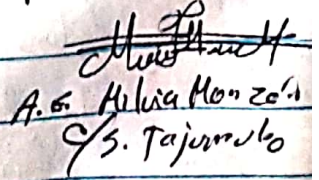 A. G. Hilvia Monzón
C/S. Tajumulco